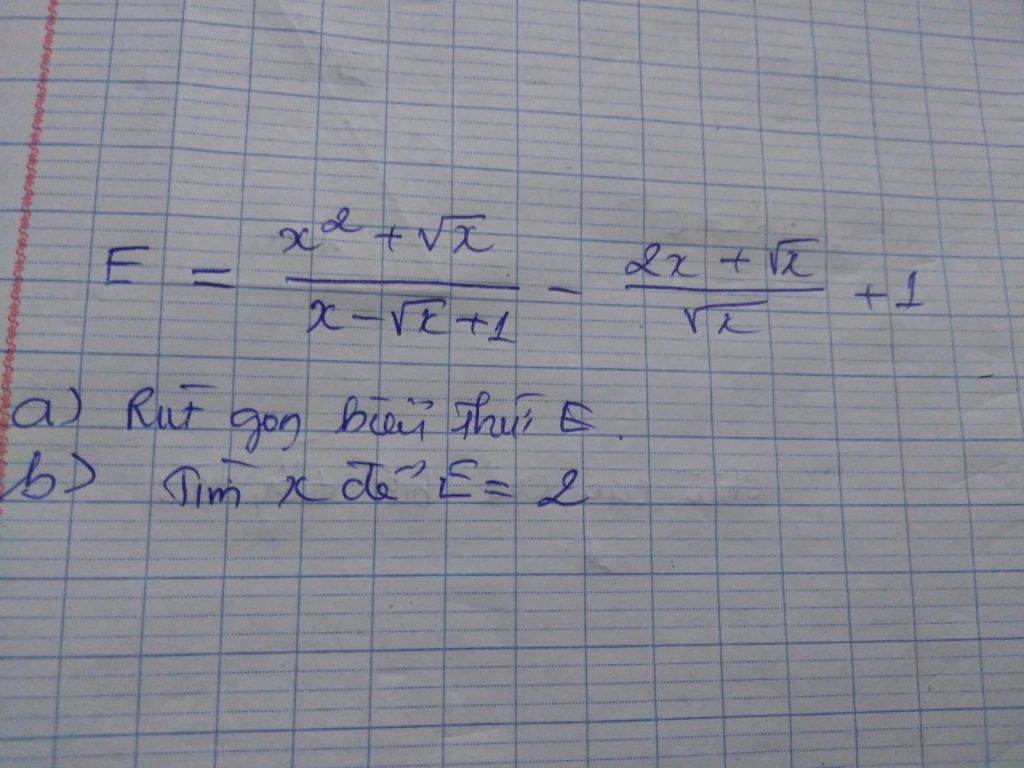 E = \frac{x^2 + \sqrt{x}}{x - \sqrt{x} + 1} - \frac{2x + \sqrt{x}}{\sqrt{x}} + 1
a) Rút gọn biểu thức E.
b) Tìm x để E = 2